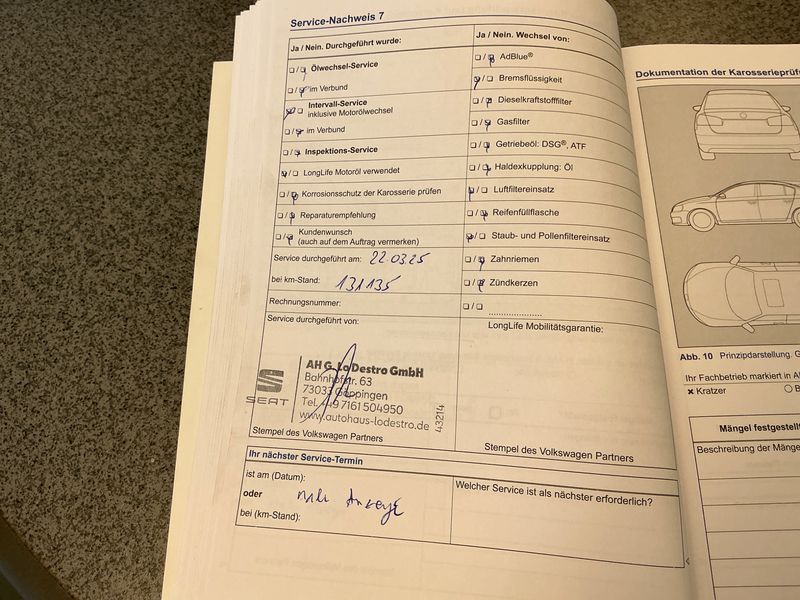 Service-Nachweis 7
Ja / Nein. Durchgeführt wurde:
Ölwechsel-Service
im Verbund
Intervall-Service
inklusive Motorölwechsel
im Verbund
Inspektions-Service
LongLife Motoröl verwendet
Korrosionsschutz der Karosserie prüfen
Reparaturempfehlung
Kundenwunsch
(auch auf dem Auftrag vermerken)
Service durchgeführt am: 22.03.25
bei km-Stand: 131135
Rechnungsnummer:
Service durchgeführt von:
SEAT
AH G. Lo Destro GmbH
Bahnhofstr. 63
73033 Göppingen
Tel. +49 7161 504950
www.autohaus-lodestro.de
43214
Stempel des Volkswagen Partners
Ja / Nein. Wechsel von:
AdBlue®
Bremsflüssigkeit
Dieselkraftstofffilter
Gasfilter
Getriebeöl: DSG®, ATF
Haldexkupplung: Öl
Luftfiltereinsatz
Reifenfüllflasche
Staub- und Pollenfiltereinsatz
Zahnriemen
Zündkerzen
LongLife Mobilitätsgarantie:
Stempel des Volkswagen Partners
Ihr nächster Service-Termin
ist am (Datum):
oder
bei (km-Stand):
Anzeige
Welcher Service ist als nächster erforderlich?
Dokumentation der Karosserieprüf
Abb. 10 Prinzipdarstellung. G
Ihr Fachbetrieb markiert in A
Kratzer
Mängel festgestellt
Beschreibung der Mänge